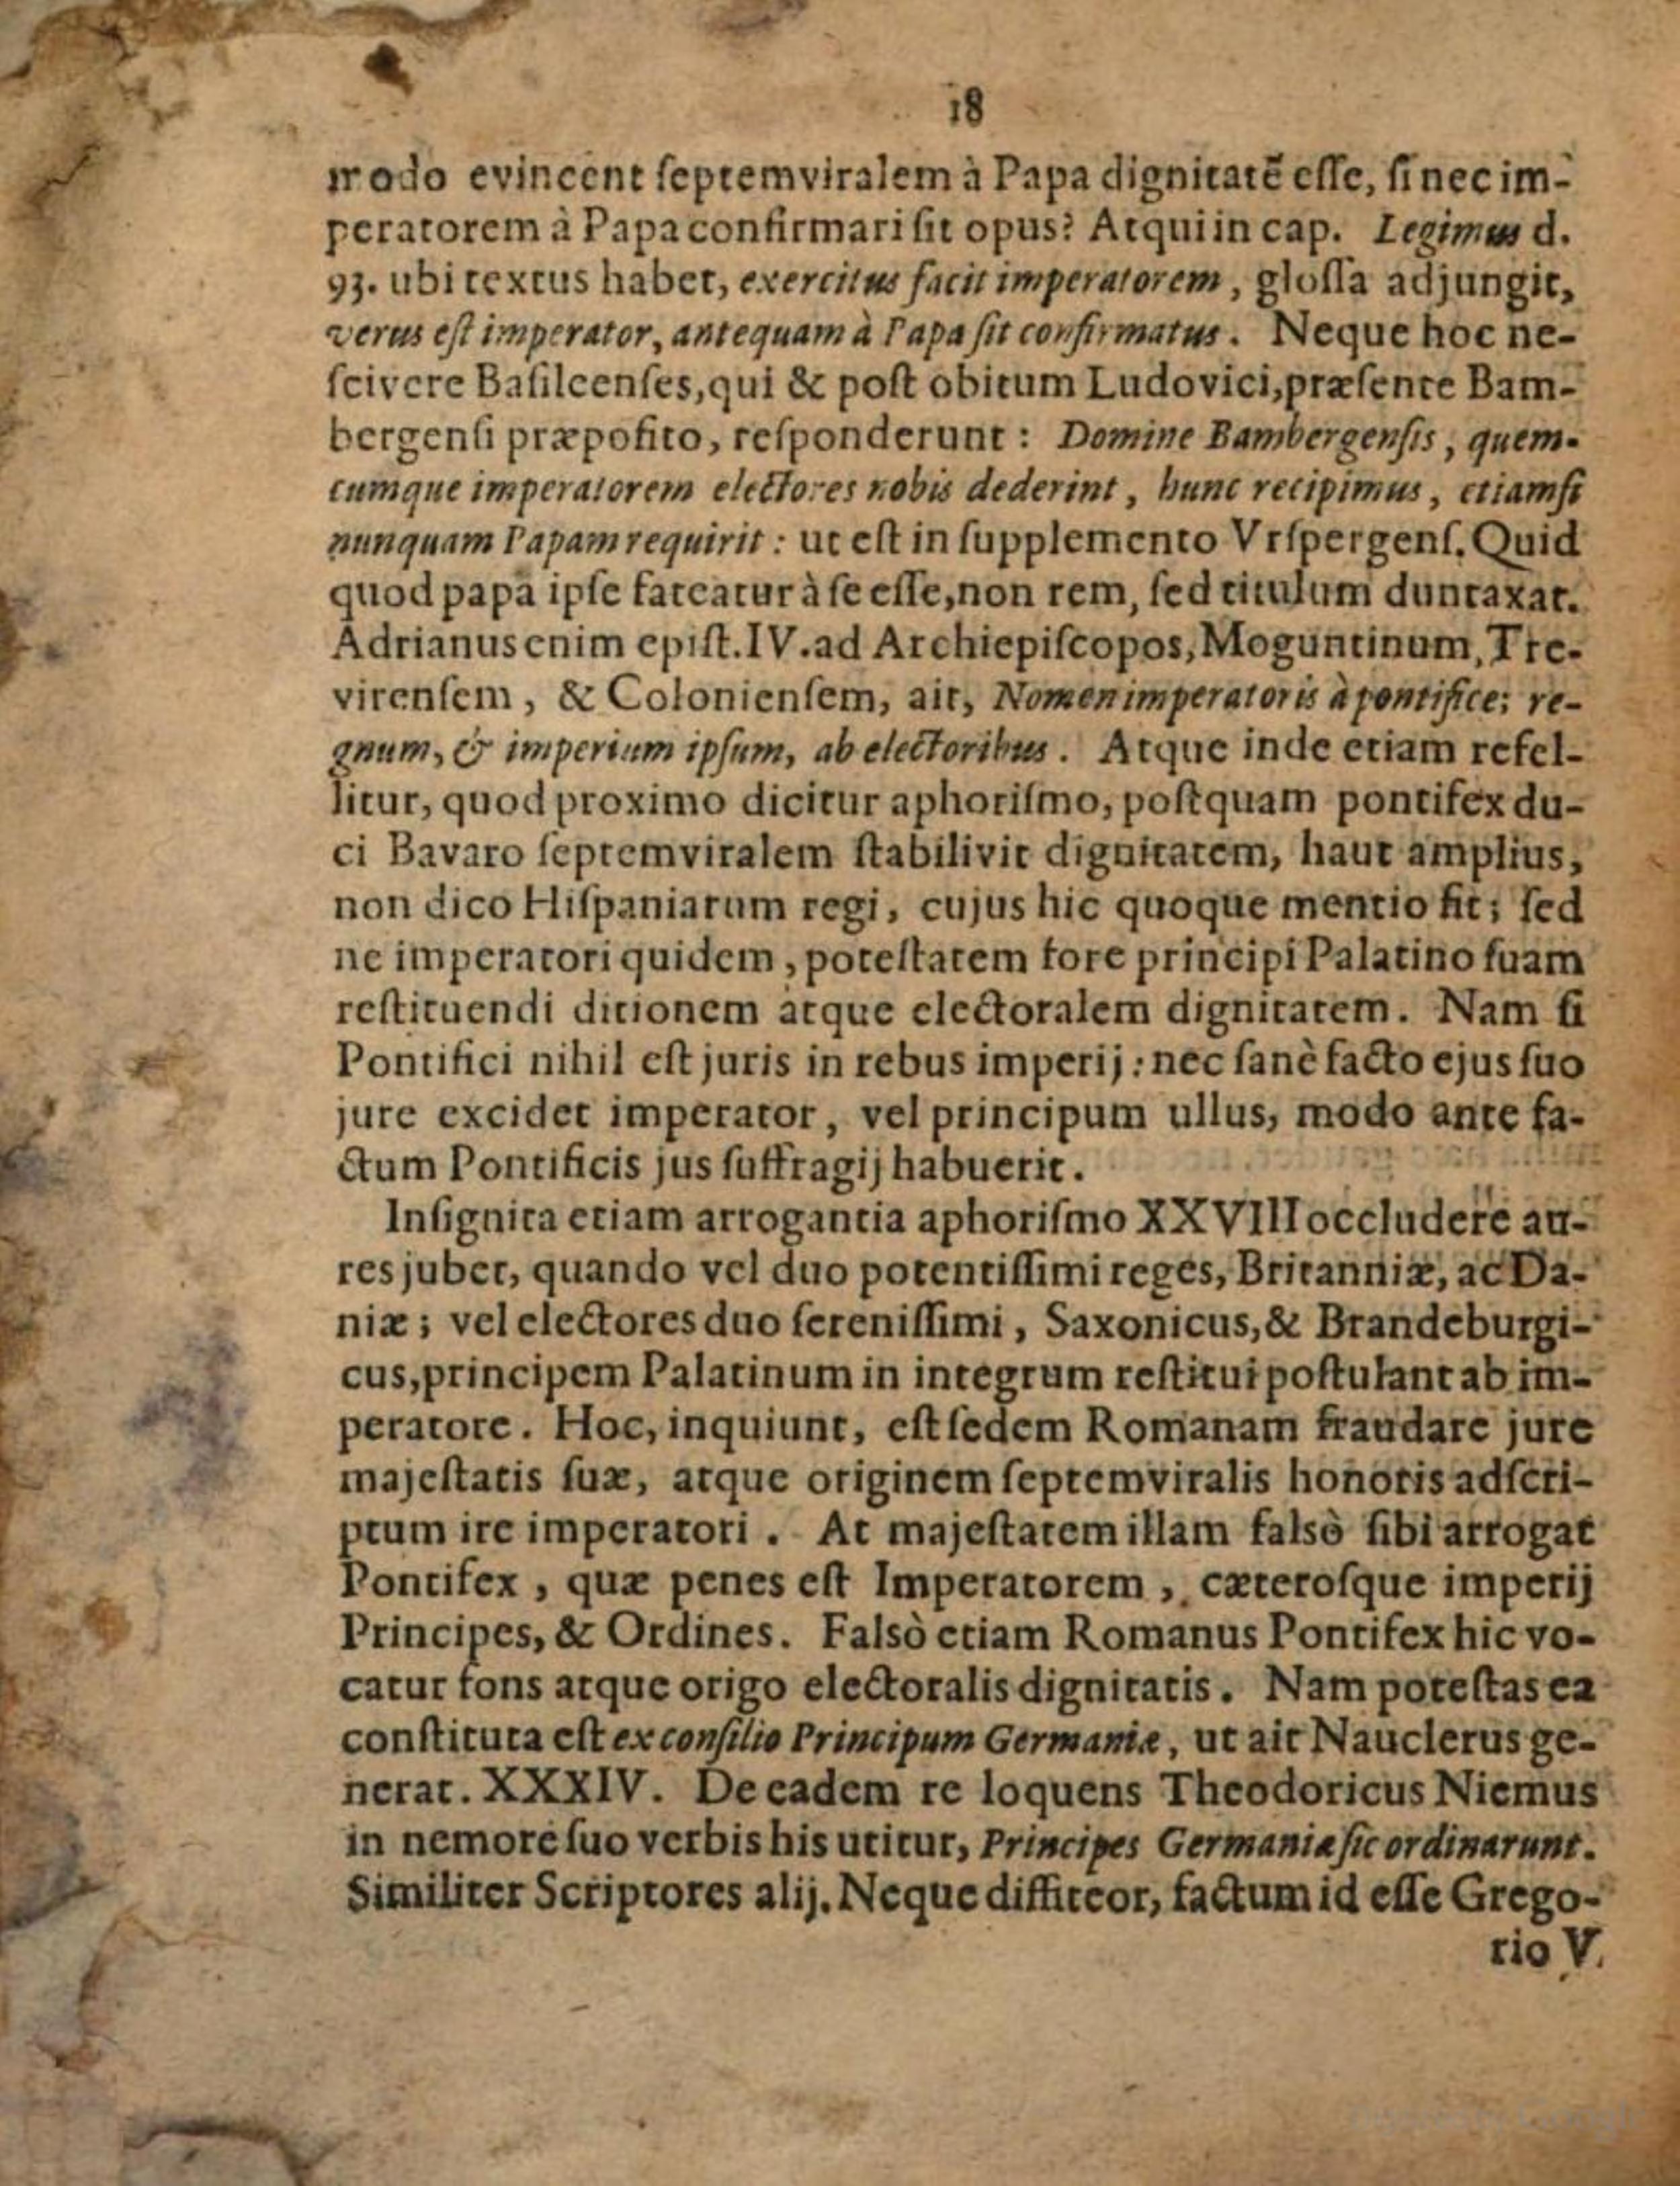 18
modo evincent ſeptemviralem à Papa dignitatē eſſe, ſi nec im-
peratorem à Papa confirmari ſit opus? Atqui in cap. Legimus d.
93. ubi textus habet, exercitus facit imperatorem, gloſſa adjungit,
verus eſt imperator, antequam à Papa ſit confirmatus. Neque hoc ne-
ſcivere Baſileenſes, qui & poſt obitum Ludovici, præſente Bam-
bergenſi præpoſito, reſponderunt: Domine Bambergenſis, quem-
cumque imperatorem electores nobis dederint, hunc recipimus, etiamſi
nunquam Papam requirit: ut eſt in ſupplemento Vrſpergenſ. Quid
quod papa ipſe fateatur à ſe eſſe, non rem, ſed titulum duntaxat.
Adrianus enim epiſt. IV. ad Archiepiſcopos, Moguntinum, Tre-
virenſem, & Colonienſem, ait, Nomen imperatoris à pontifice; re-
gnum, & imperium ipſum, ab electoribus. Atque inde etiam refel-
litur, quod proximo dicitur aphoriſmo, poſtquam pontifex du-
ci Bavaro ſeptemviralem ſtabilivit dignitatem, haut amplius,
non dico Hiſpaniarum regi, cujus hic quoque mentio fit; ſed
ne imperatori quidem, poteſtatem fore principi Palatino ſuam
reſtituendi ditionem atque electoralem dignitatem. Nam ſi
Pontifici nihil eſt juris in rebus imperij: nec ſanè facto ejus ſuo
jure excidet imperator, vel principum ullus, modo ante fa-
ctum Pontificis jus ſuffragij habuerit.
Inſignita etiam arrogantia aphoriſmo XXVIII occludere au-
res jubet, quando vel duo potentiſſimi reges, Britanniæ, ac Da-
niæ; vel electores duo ſereniſſimi, Saxonicus, & Brandeburgi-
cus, principem Palatinum in integrum reſtitui poſtulant ab im-
peratore. Hoc, inquiunt, eſt ſedem Romanam fraudare jure
majeſtatis ſuæ, atque originem ſeptemviralis honoris adſcri-
ptum ire imperatori. At majeſtatem illam falsò ſibi arrogat
Pontifex, quæ penes eſt Imperatorem, cæteroſque imperij
Principes, & Ordines. Falsò etiam Romanus Pontifex hic vo-
catur fons atque origo electoralis dignitatis. Nam poteſtas ea
conſtituta eſt ex conſilio Principum Germaniæ, ut ait Nauclerus ge-
nerat. XXXIV. De eadem re loquens Theodoricus Niemus
in nemore ſuo verbis his utitur, Principes Germaniæ ſic ordinarunt.
Similiter Scriptores alij. Neque diffiteor, factum id eſſe Grego-
rio V.